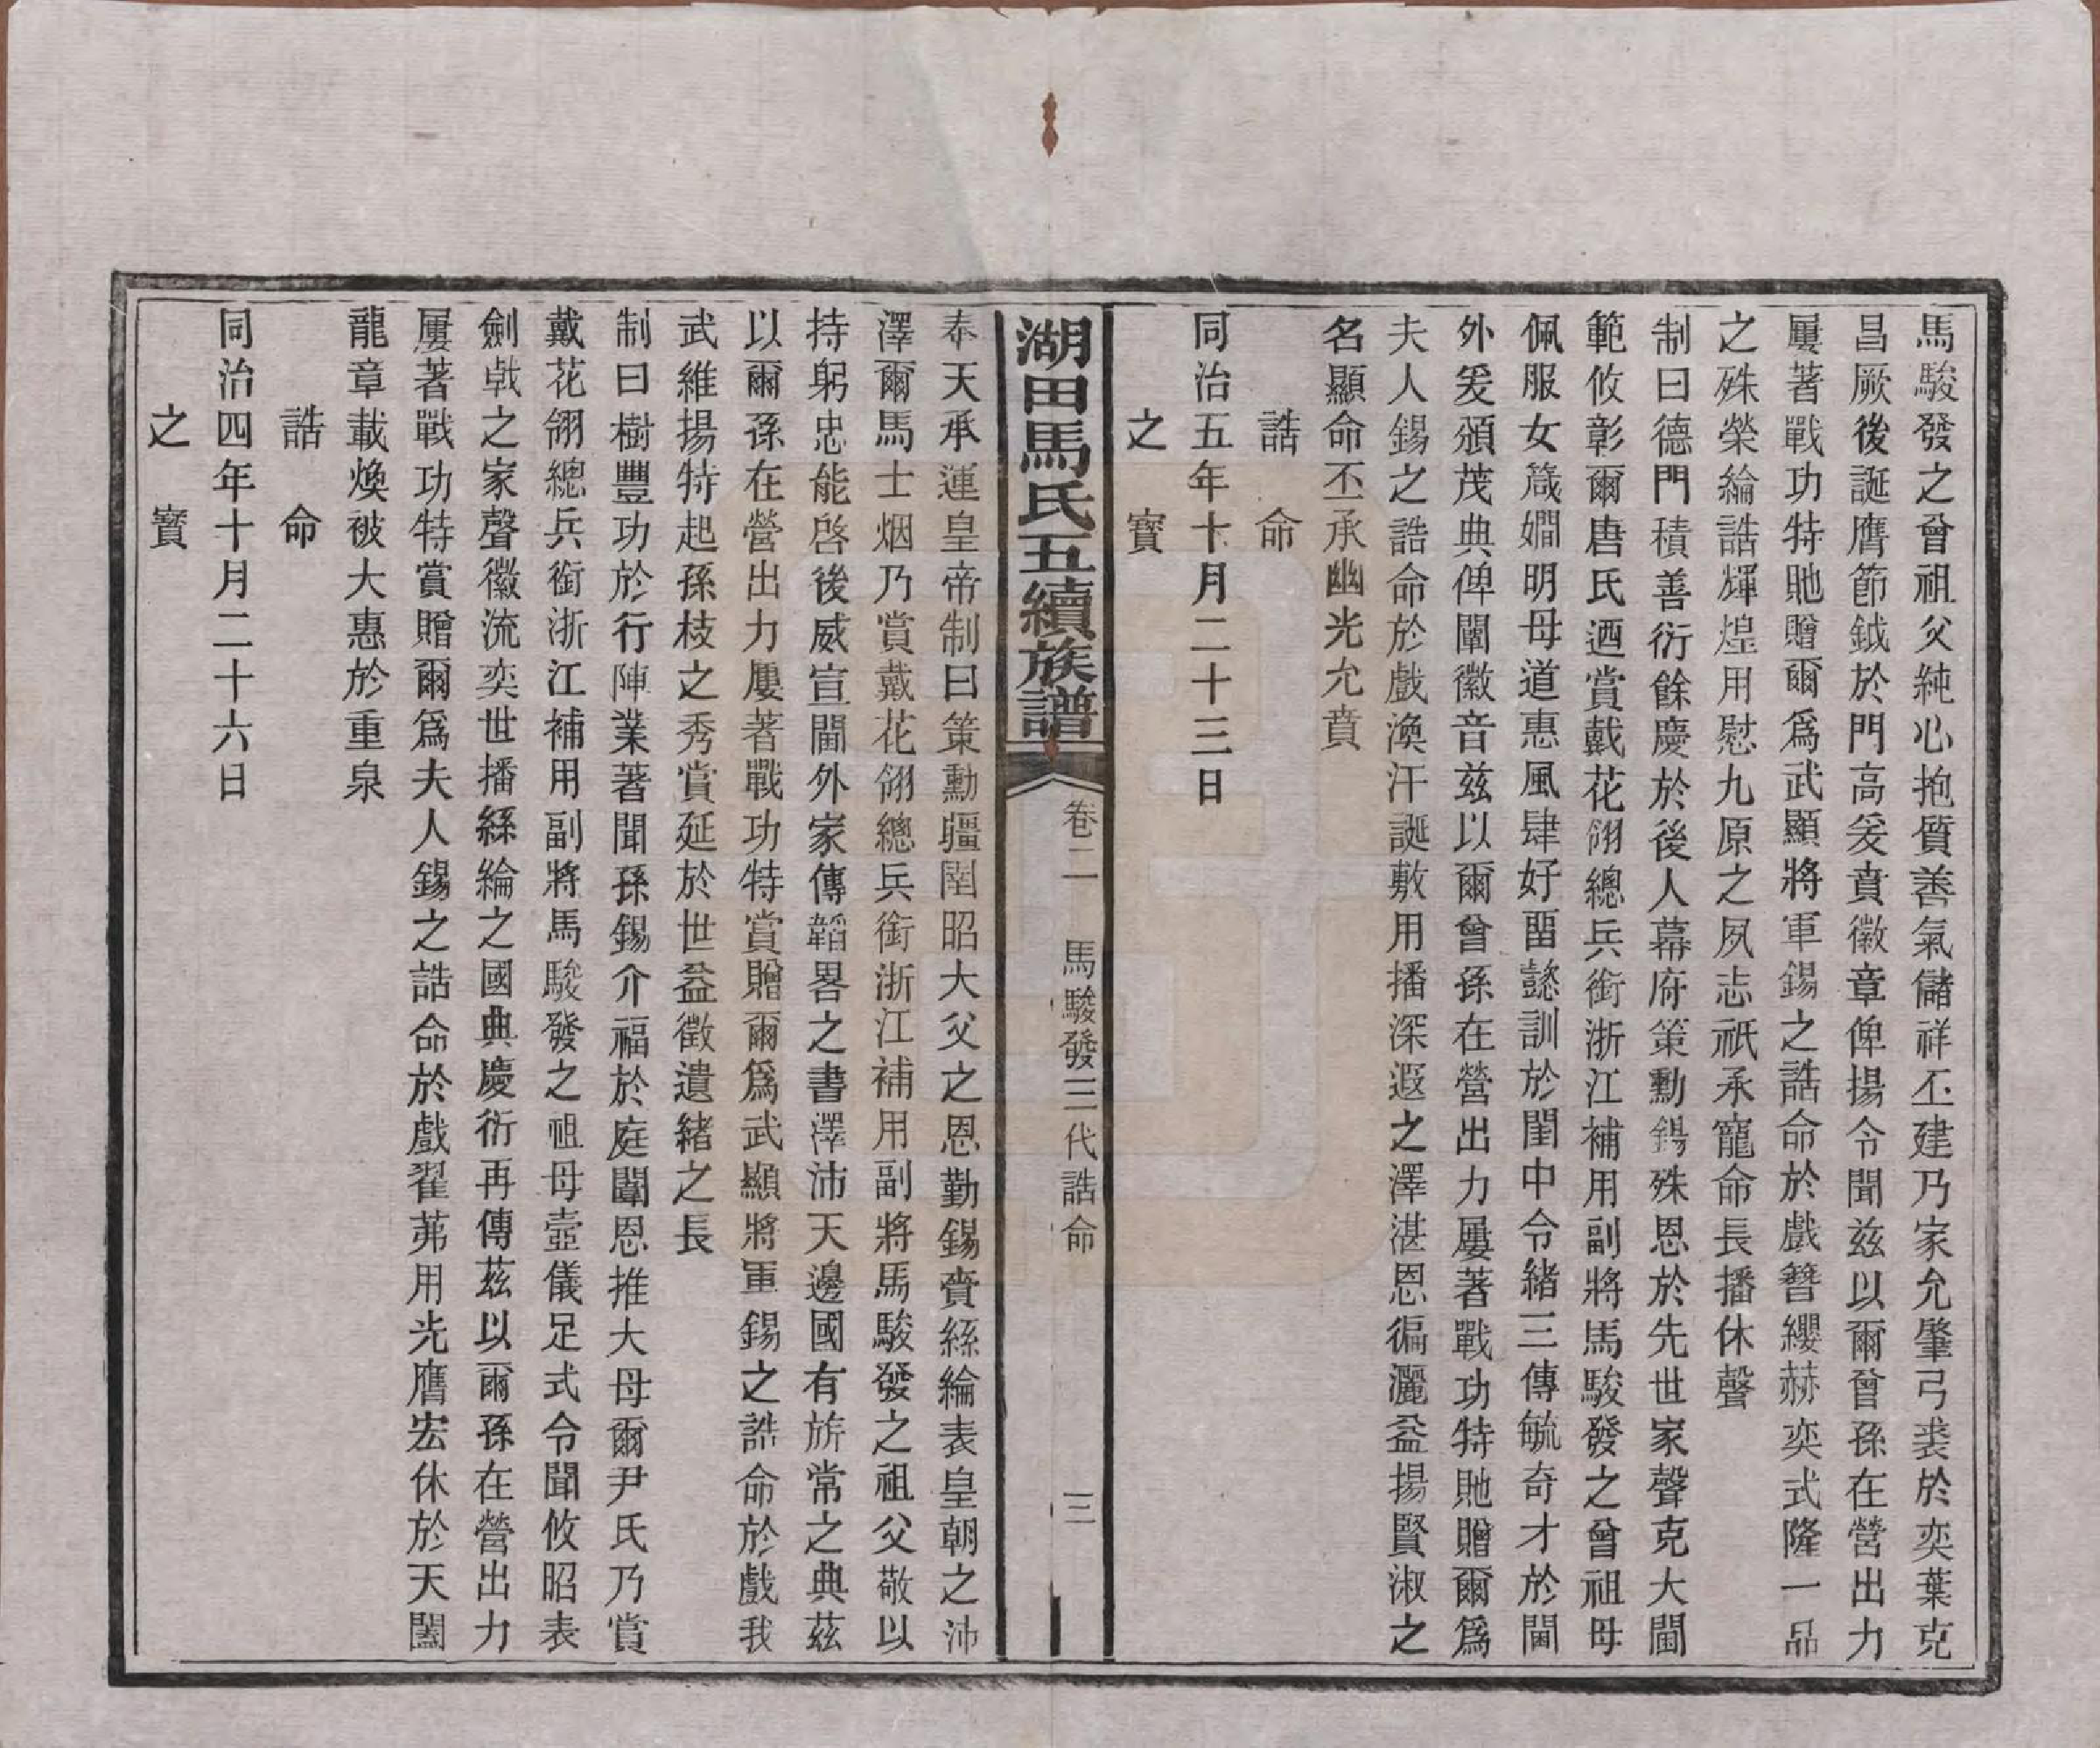 馬駿發之曾祖父純心抱質善氣儲祥丕建乃家允肇弓裘於奕葉克
昌厥後誕膺節鉞於門高爰賁徽章俾揚令聞兹以爾曾孫在營出力
屢著戰功特貤贈爾爲武顯將軍錫之誥命於戲簪纓赫奕式隆一品
之殊榮綸誥輝煌用慰九原之夙志祇承寵命長播休聲
制曰德門積善衍餘慶於後人幕府策勳錫殊恩於先世家聲克大閫
範攸彰爾唐氏迺賞戴花翎總兵銜浙江補用副將馬駿發之曾祖母
佩服女箴嫺明母道惠風肆好畱懿訓於閨中令緒三傳毓奇才於閫
外爰頒茂典俾闡徽音兹以爾曾孫在營出力屢著戰功特貤贈爾爲
夫人錫之誥命於戲渙汗誕敷用播深遐之澤湛恩徧灑益揚賢淑之
名顯命丕承幽光允賁
誥命
同治五年十月二十三日
之寳
湖田馬氏五續族譜
卷二 馬駿發三代誥命 三
奉天承運皇帝制曰策勳疆圉昭大父之恩勤錫賚絲綸表皇朝之沛
澤爾馬士烟乃賞戴花翎總兵銜浙江補用副將馬駿發之祖父敬以
持躬忠能啓後威宣閫外家傳韜畧之書澤沛天邊國有旂常之典茲
以爾孫在營出力屢著戰功特賞贈爾爲武顯將軍錫之誥命於戲我
武維揚特起孫枝之秀賞延於世益徵遺緒之長
制曰樹豐功於行陣業著聞孫錫介福於庭闈恩推大母爾尹氏乃賞
戴花翎總兵銜浙江補用副將馬駿發之祖母壼儀足式令聞攸昭表
劍戟之家聲徽流奕世播絲綸之國典慶衍再傳茲以爾孫在營出力
屢著戰功特賞贈爾爲夫人錫之誥命於戲翟茀用光膺宏休於天闥
龍章載煥被大惠於重泉
誥命
同治四年十月二十六日
之寳